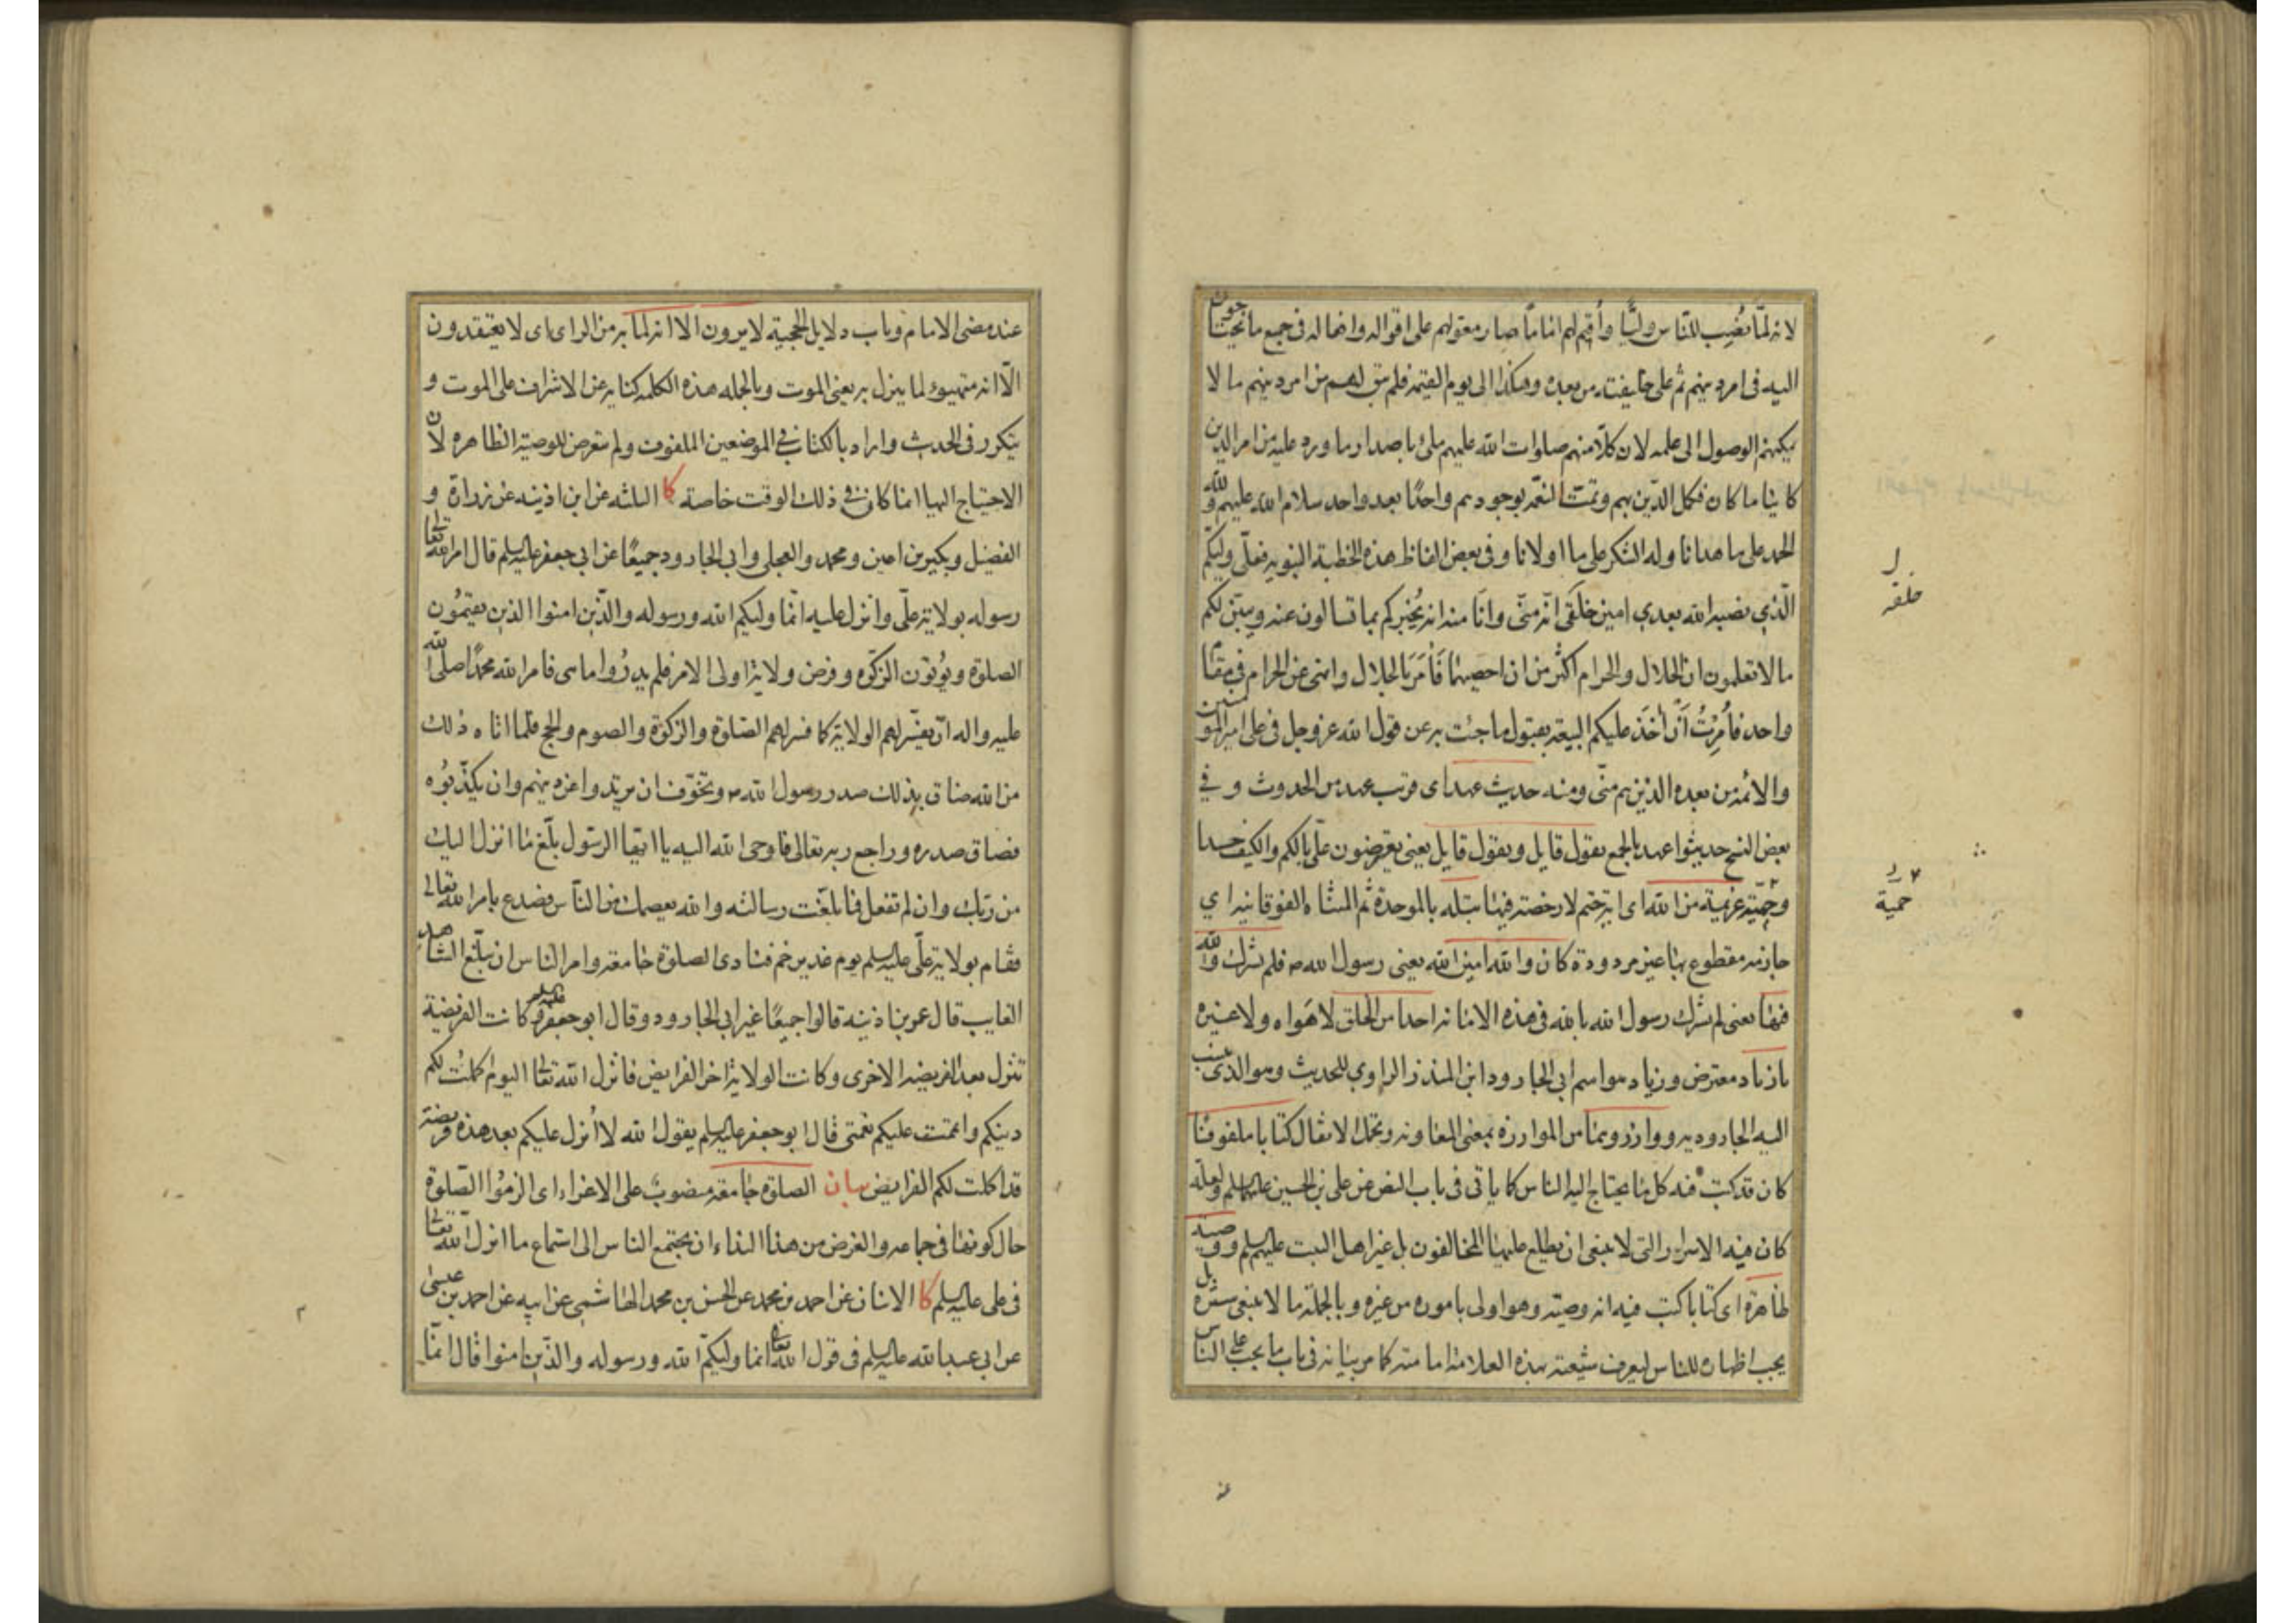 لانه لما نُصِب للناس وليّا وأُقيم لهم اماما صار معولهم على اقواله وافعاله فى جميع ما يحتاجون
اليه فى امر دينهم ثم على خليفته من بعده وهكذا الى يوم القيمة فلم يبق لهم من امر دينهم ما لا
يمكنهم الوصول الى علمه لان كلا منهم صلوات الله عليهم ملئ باصدار ما ورد عليه من امر الدين
كاينا ما كان فكمل الدين بهم وتمت النعمة بوجودهم واحدًا بعد واحد سلام الله عليهم ولله
الحمد على ما هدانا وله الشكر على ما اولانا وفى بعض الفاظ هذه الخطبة النبوية فعلّى وليكم
الّذي نصبه الله بعدي امين خلقى انّه منّى وانَا منه انه يُخبركم بما تسالون عنه ويبيّن لكم
ما لا تعلمون ان الحلال والحرام اكثر من ان احصيهما فَاٰمَرَ بالحلال وانهى عن الحرام فى مقام
واحد فاُمِرْتُ أَنْ اٰخُذ عليكم البيعة بقبول ما جئت به عن قول الله عز وجل فى على امير المومنين
والائمة من بعده الذين هم منّى ومنه حديث عهد اى قرب عهد من الحدوث و فى
بعض النسخ حديثوا عهد بالجمع يقول قايل ويقول قايل يعنى يعترضون علّى بالكم والكيف حسدا
وحميّة عزيمة من الله اى اية حتم لا رخصة فيها بتلة بالموحدة ثم المثناة الفوقانية اي
جازمة مقطوع بها غير مردودة كان والله امين الله يعنى رسول الله ص فلم يشرك والله
فيها يعنى لم يشرك رسول الله بالله فى هذه الامانة احدا من الخلق لا هَواه ولا غيره
يا زياد معترض وزياد هو اسم ابى الجارود ابن المنذر الراوي للحديث وهو الذى ينسب
اليه الجارودية ووازروهما من الموازرة بمعنى المعاونة ويحتمل الاثقال كتابا ملفوفا
كان قد كتب فيه كل ما يحتاج اليه الناس كما ياتى فى باب النص عن على بن الحسين عليهما السلم ولعله
كان فيه الاسرار التى لا ينبغى ان يطلع عليها المخالفون بل غير اهل البيت عليهم السلم ووصية
ظاهرة اى كتابا كتب فيه انه وصيته وهو اولى باموره من غيره وبالجملة ما لا ينبغى ستره بل
يجب اظهاره للناس ليعرف شيعته بهذه العلامة امامته كما مر بيانه فى باب ما يجب على الناس
خلقه
حمية
عند مضى الامام وباب دلايل الحجية لا يرون الا انه لما به من الراى اى لا يعتقدون
الّا انه متهيوء لما ينزل به يعنى الموت وبالجمله هذه الكلمة كناية عن الاشراف على الموت و
يتكرر فى الحديث واراد بالكتاب فى الموضعين الملفوف ولم يتعرض للوصية الظاهرة لان
الاحتياج اليها انما كان فى ذلك الوقت خاصة كا الثلثه عن ابن اذينه عن زرارة و
الفضيل وبكير بن اعين ومحمد والعجلى وابى الجارود جميعًا عن ابى جعفر عليه السلم قال امر الله تعالى
رسوله بولاية علّى وانزل عليه انّما وليكم الله ورسوله والّذين امنوا الذين يقيمُون
الصلوة ويؤتون الزكوة وفرض ولاية اولى الامر فلم يدرُوا ما هى فامر الله محمدًا صلى الله
عليه واله ان يفسّر لهم الولاية كما فسر لهم الصلوة والزكوة والصوم والحج فلما اتاه ذلك
من الله ضاق بذلك صدر رسول الله ص وتخوّف ان يرتدوا عن دينهم وان يكذّبوُه
فضاق صدره وراجع ربه تعالى فاوحى الله اليه يا ايها الرسول بلّغ ما انزل اليك
من ربّك وان لم تفعل فما بلغّت رسالته والله يعصمك من الناس فصدع بامر الله تعالى
فقام بولاية علّى عليه السلم يوم غدير خم فنادى الصلوة جامعة وامر الناس ان يبلّغ الشاهد
الغايب قال عمر بن اذينه قالوا جميعًا غير ابى الجارود وقال ابو جعفر عليه السلم وكانت الفريضة
تنزل بعد الفريضة الاخرى وكانت الولاية اخر الفرايض فانزل الله تعالى اليوم اكملتُ لكم
دينكم واتممت عليكم نعمتى قال ابو جعفر عليه السلم يقول الله لا اُنزل عليكم بعد هذه فريضة
قد اكملت لكم الفرايض بيان الصلوة جامعة منصوب على الاغراء اى الزموُا الصّلوة
حال كونها فى جماعه والغرض من هذا النداء ان يجتمع الناس الى استماع ما انزل الله تعالى
فى على عليه السلم كا الاثنان عن احمد بن محمد عن الحسن بن محمد الهاشمى عن ابيه عن احمد بن عيسى
عن ابى عبد الله عليه السلم فى قول الله تعالى انما وليكم الله ورسوله والذين امنوا قال انمّا